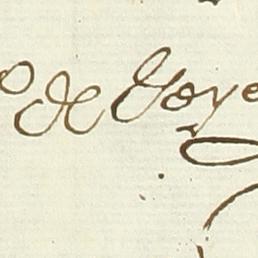 de Goye